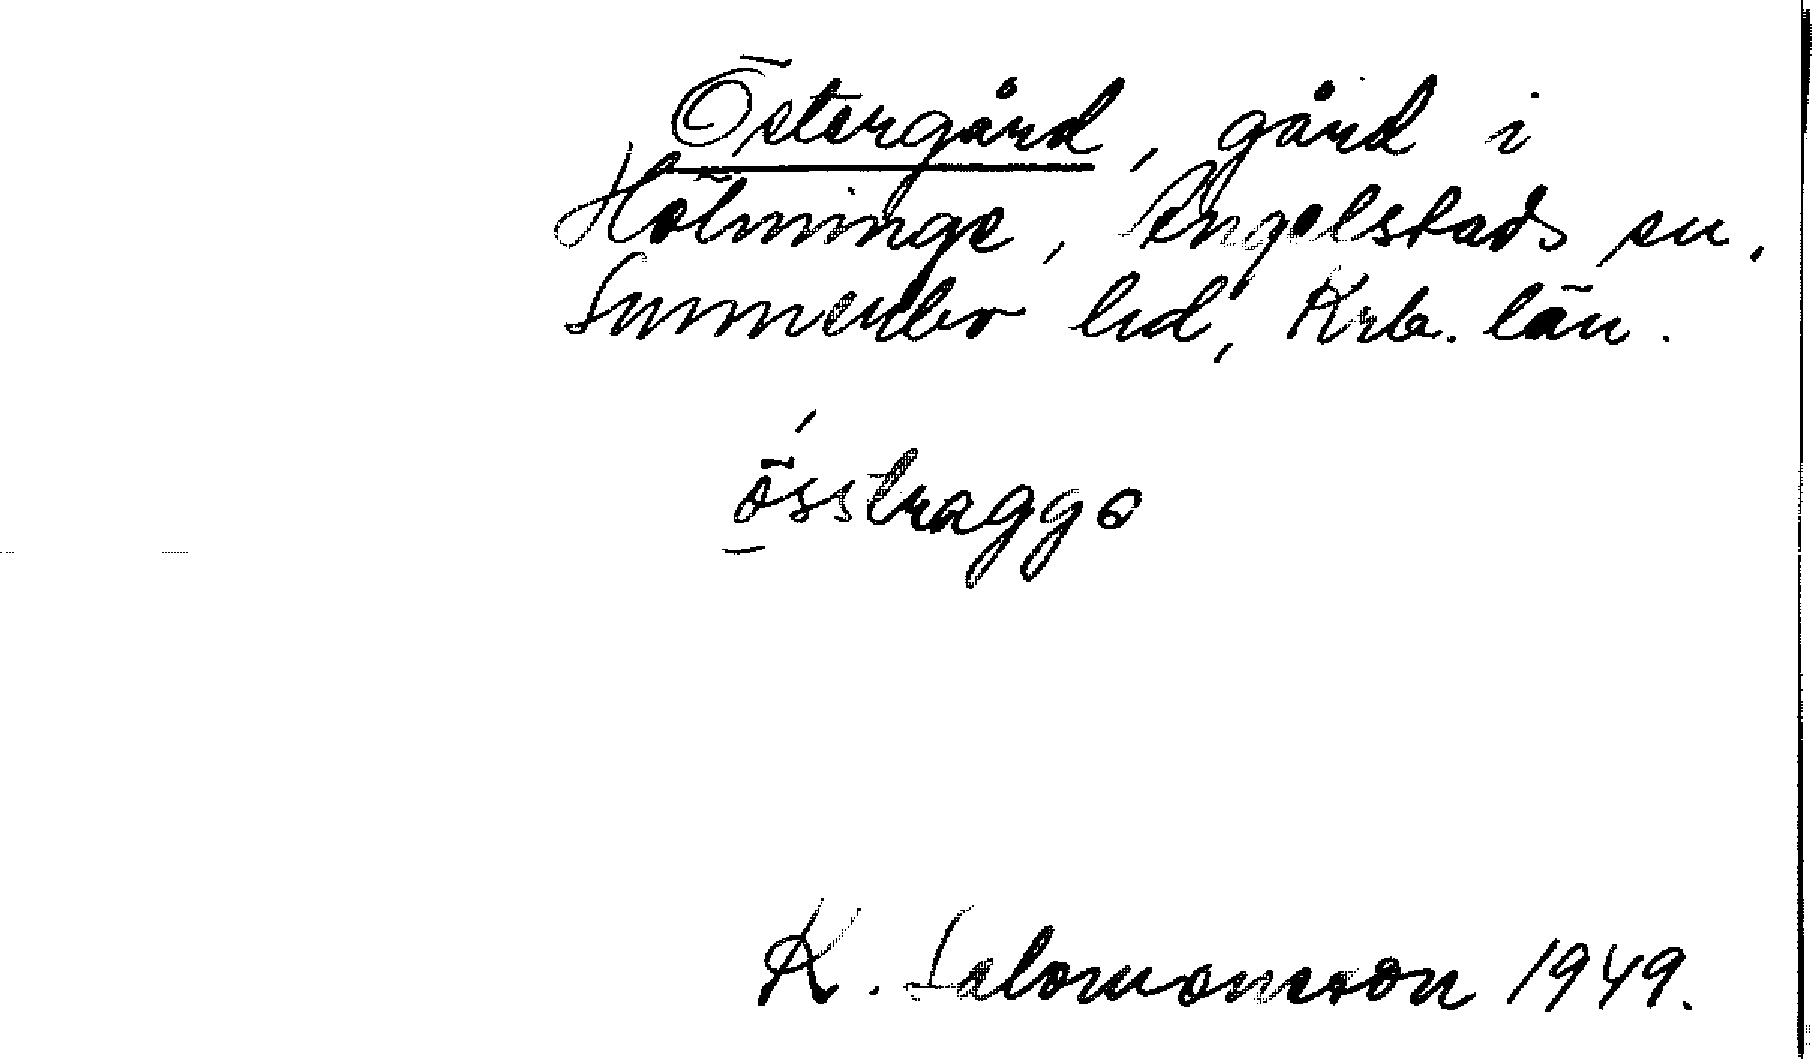 Östergård, gård i
Hölminge, Angelstads sn.
Sunnerbo hd, Krb. län.
ö̱sstraggo
K. Salomonsson 1949.